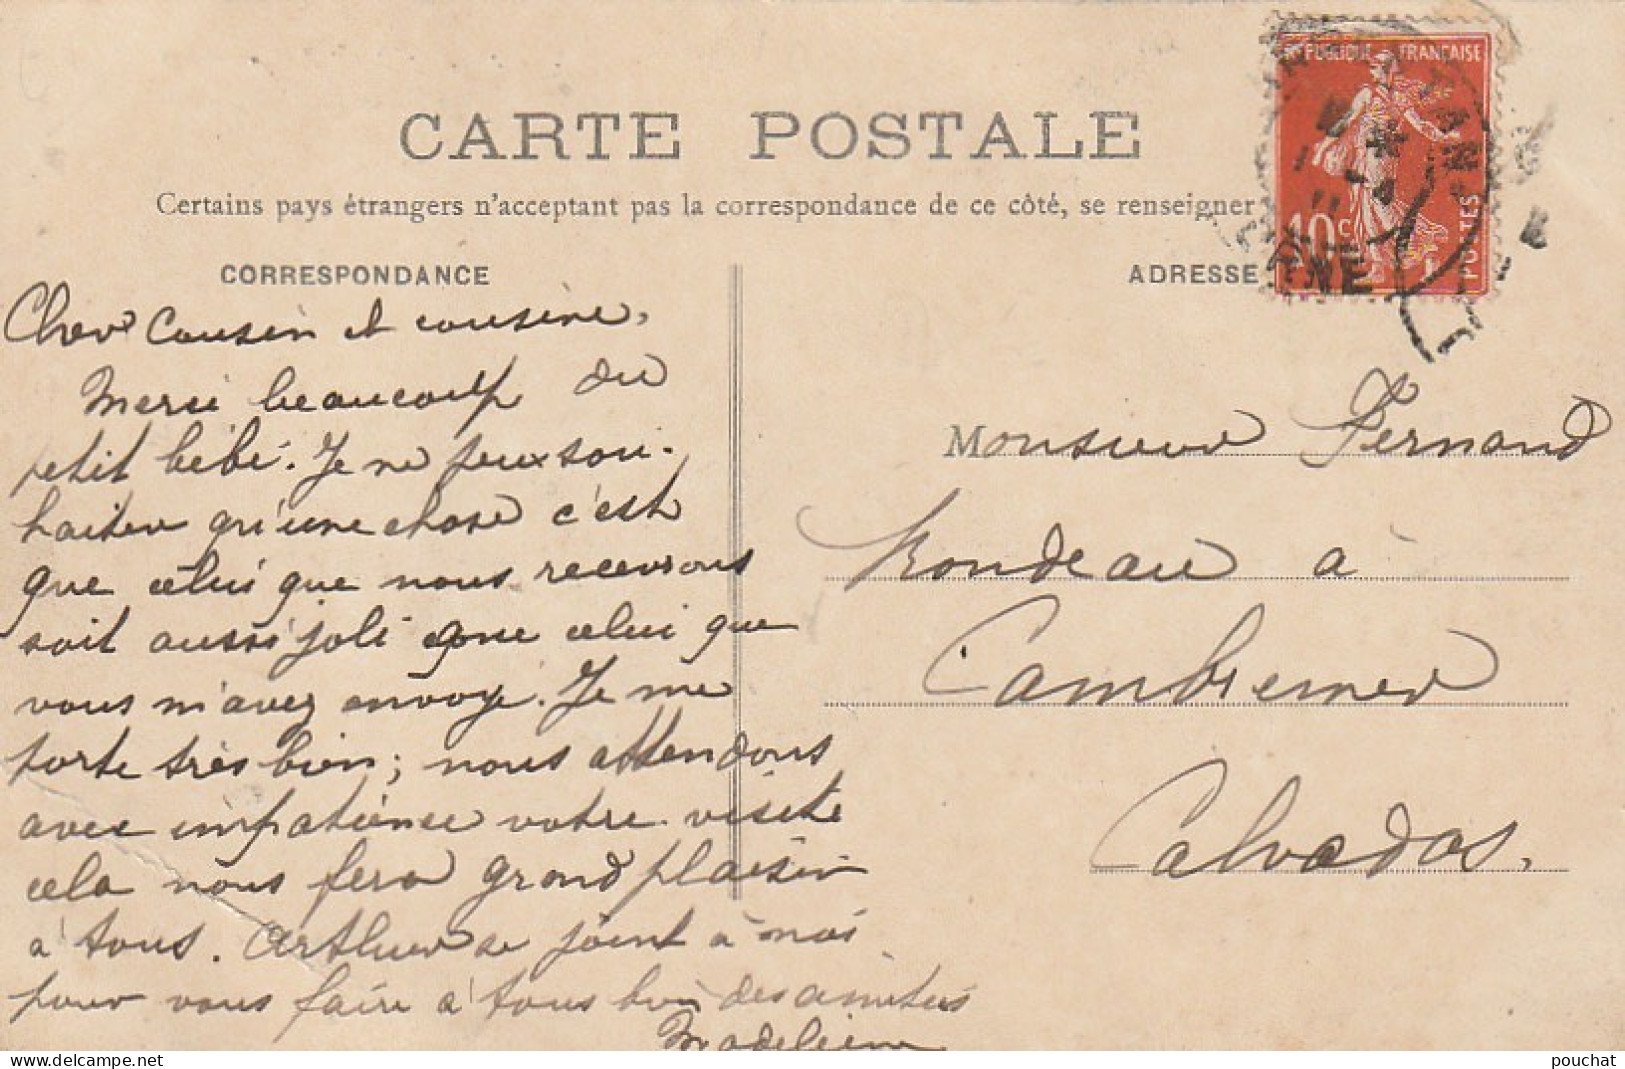 CARTE POSTALE
Certains pays étrangers n'acceptant pas la correspondance de ce côté, se renseigner
RÉPUBLIQUE FRANÇAISE
10c
POSTES
CORRESPONDANCE
Cher Cousin et cousine,
Merci beaucoup du
petit bébé. Je ne peux sou-
haiter qu'une chose c'est
que celui que nous recevrons
soit aussi joli que celui que
vous m'avez envoyé. Je me
porte très bien; nous attendons
avec impatience votre visite
cela nous fera grand plaisir
à tous. Arthur se joint à moi
pour vous faire à tous des amitiés
Madeleine
ADRESSE
Monsieur Fernand
Rondeau à
Cambremer
Calvados.
delcampe.net
pouchat